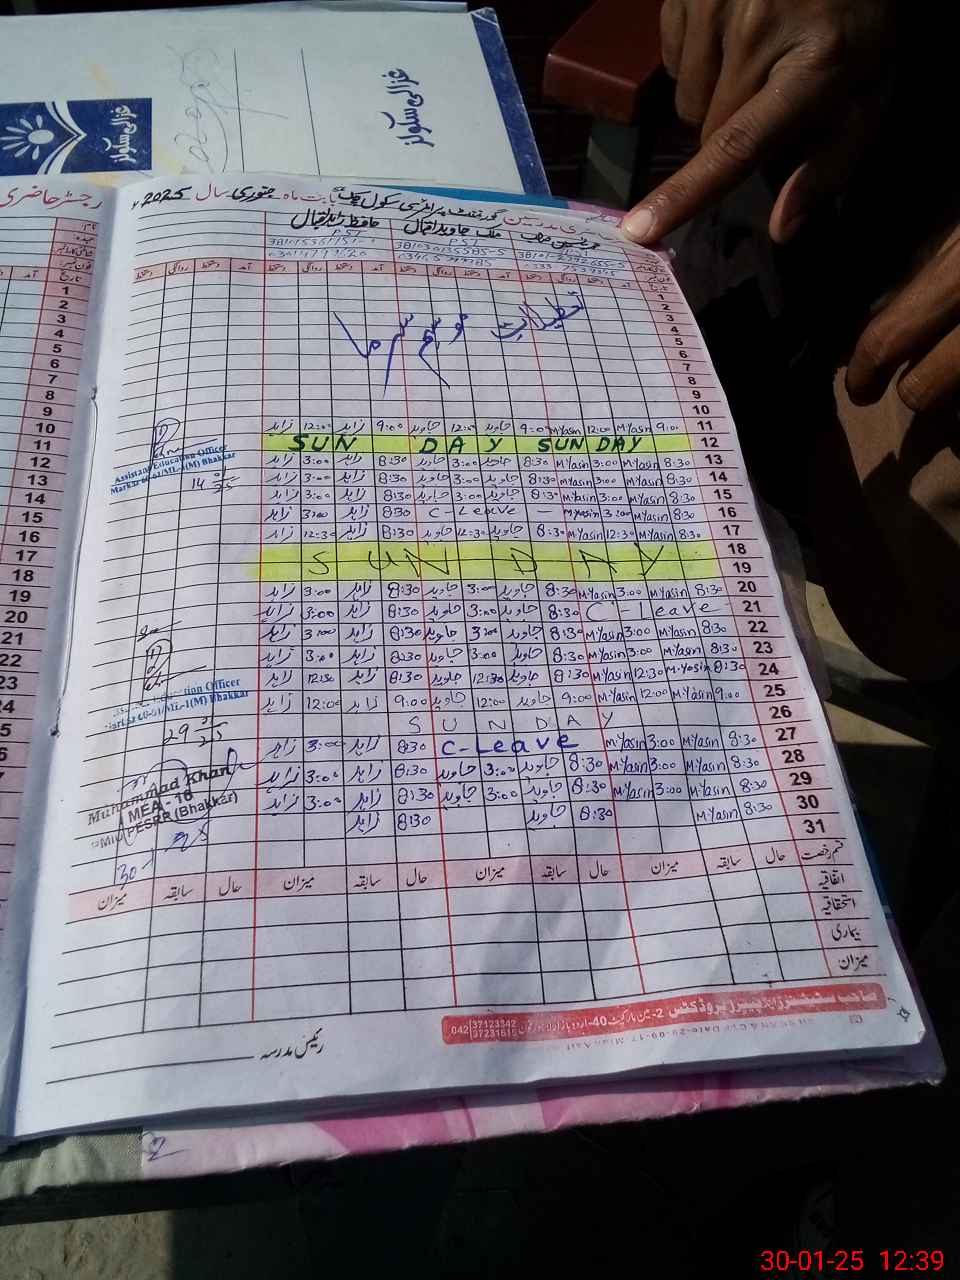 غزالی سکولز
غزالی سکولز
رجسٹر حاضری
حاضری مدرسین گورنمنٹ پرائمری سکول چک بابت ماہ جنوری سال 2025ء
ملک جاوید اقبال حافظ زاہد اقبال
PST PST
تاریخ آمد دستخط روانگی دستخط آمد دستخط روانگی دستخط آمد دستخط روانگی دستخط آمد دستخط روانگی دستخط
1
2
3
4
5
6
7
8
9
10
تعطیلات موسم سرما
11 9:00 M.Yasin 12:00 M.Yasin 9:00 جاوید 12:00 جاوید 9:00 زاہد 12:00 زاہد
12 SUN DAY SUN DAY
13 8:30 M.Yasin 3:00 M.Yasin 8:30 جاوید 3:00 جاوید 8:30 زاہد 3:00 زاہد
14 8:30 M.Yasin 3:00 M.Yasin 8:30 جاوید 3:00 جاوید 8:30 زاہد 3:00 زاہد
15 8:30 M.Yasin 3:00 M.Yasin 8:30 جاوید 3:00 جاوید 8:30 زاہد 3:00 زاہد
16 8:30 M.Yasin 3:00 M.Yasin C-Leave - 8:30 زاہد 3:00 زاہد
17 8:30 M.Yasin 12:30 M.Yasin 8:30 جاوید 12:30 جاوید 8:30 زاہد 12:30 زاہد
18
19 SUN DAY
20 8:30 M.Yasin 3:00 M.Yasin 8:30 جاوید 3:00 جاوید 8:30 زاہد 3:00 زاہد
21 C-Leave 8:30 جاوید 3:00 جاوید 8:30 زاہد 3:00 زاہد
22 8:30 M.Yasin 3:00 M.Yasin 8:30 جاوید 3:00 جاوید 8:30 زاہد 3:00 زاہد
23 8:30 M.Yasin 3:00 M.Yasin 8:30 جاوید 3:00 جاوید 8:30 زاہد 3:00 زاہد
24 8:30 M.Yasin 12:30 M.Yasin 8:30 جاوید 12:30 جاوید 8:30 زاہد 12:30 زاہد
25 9:00 M.Yasin 12:00 M.Yasin 9:00 جاوید 12:00 جاوید 9:00 زاہد 12:00 زاہد
26 SUNDAY
27 8:30 M.Yasin 3:00 M.Yasin C-Leave 8:30 زاہد 3:00 زاہد
28 8:30 M.Yasin 3:00 M.Yasin 8:30 جاوید 3:00 جاوید 8:30 زاہد 3:00 زاہد
29 8:30 M.Yasin 3:00 M.Yasin 8:30 جاوید 3:00 جاوید 8:30 زاہد 3:00 زاہد
30 8:30 M.Yasin 8:30 جاوید 8:30 زاہد
31
Assistant Education Officer
Markaz 60-61/ML-1(M) Bhakkar
14
Education Officer
Markaz 60-61/ML-1(M) Bhakkar
29
Muhammad Khan
MEA - 16
PESRP (Bhakkar)
30-1-25
قسم رخصت حال سابقہ میزان حال سابقہ میزان حال سابقہ میزان حال سابقہ میزان
اتفاقیہ
استحقاقیہ
بیماری
میزان
صاحب سٹیشنرز اینڈ پیپرز پروڈکٹس 2-مین مارکیٹ 40-اردو بازار لاہور فون 042 37123342 37231615
رئیس مدرسہ
30-01-25 12:39